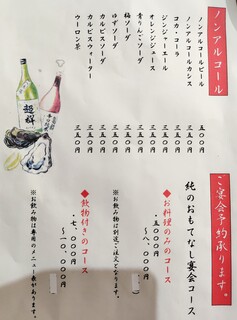 ノンアルコール
ノンアルコールビール 五〇〇円
ノンアルコールカシス 三五〇円
コカ・コーラ 三五〇円
ジンジャーエール 三五〇円
オレンジジュース 三五〇円
青りんごソーダ 三五〇円
梅ソーダ 三五〇円
ゆずソーダ 三五〇円
カルピスソーダ 三五〇円
カルピスウォーター 三五〇円
ウーロン茶 三五〇円
超群
ご宴会予約承ります。
純のおもてなし宴会コース
◆お料理のみのコース
・五、〇〇〇円
〜八、〇〇〇円
※お飲み物は別途ご注文となります。
◆飲物付きのコース
・七、〇〇〇円
〜一〇、〇〇〇円
※お飲み物は専用のメニュー表があります。